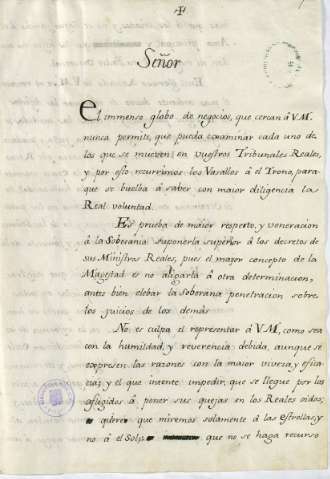 Señor
El immenso globo de negocios, que cercan á V.M.
nunca permite, que pueda examinar cada uno de
los que se mueven en vuestros Tribunales Reales,
y por esto recurrimos los Vasallos á el Trono, para
que se buelba á saber con maior diligencia la
Real voluntad.
Es prueba de maior respecto, y veneracion
á la Soberania suponerla superior á los decretos de
sus Ministros Reales, pues el maior concepto de
la Magestad es no aligarla á otra determinacion,
antes bien elebar la Soberana penetracion sobre
los juicios de los demás
No es culpa el representar á V.M. como sea
con la humildad, y reverencia debida, aunque se
expresen las razones con la maior viveza, y efica
cia; y el que intente impedir, que se llegue por los
afligidos á poner sus quejas en los Reales oidos;
quiere que miremos solamente á las estrellas, y
no á el Sol; que no se haga recurso